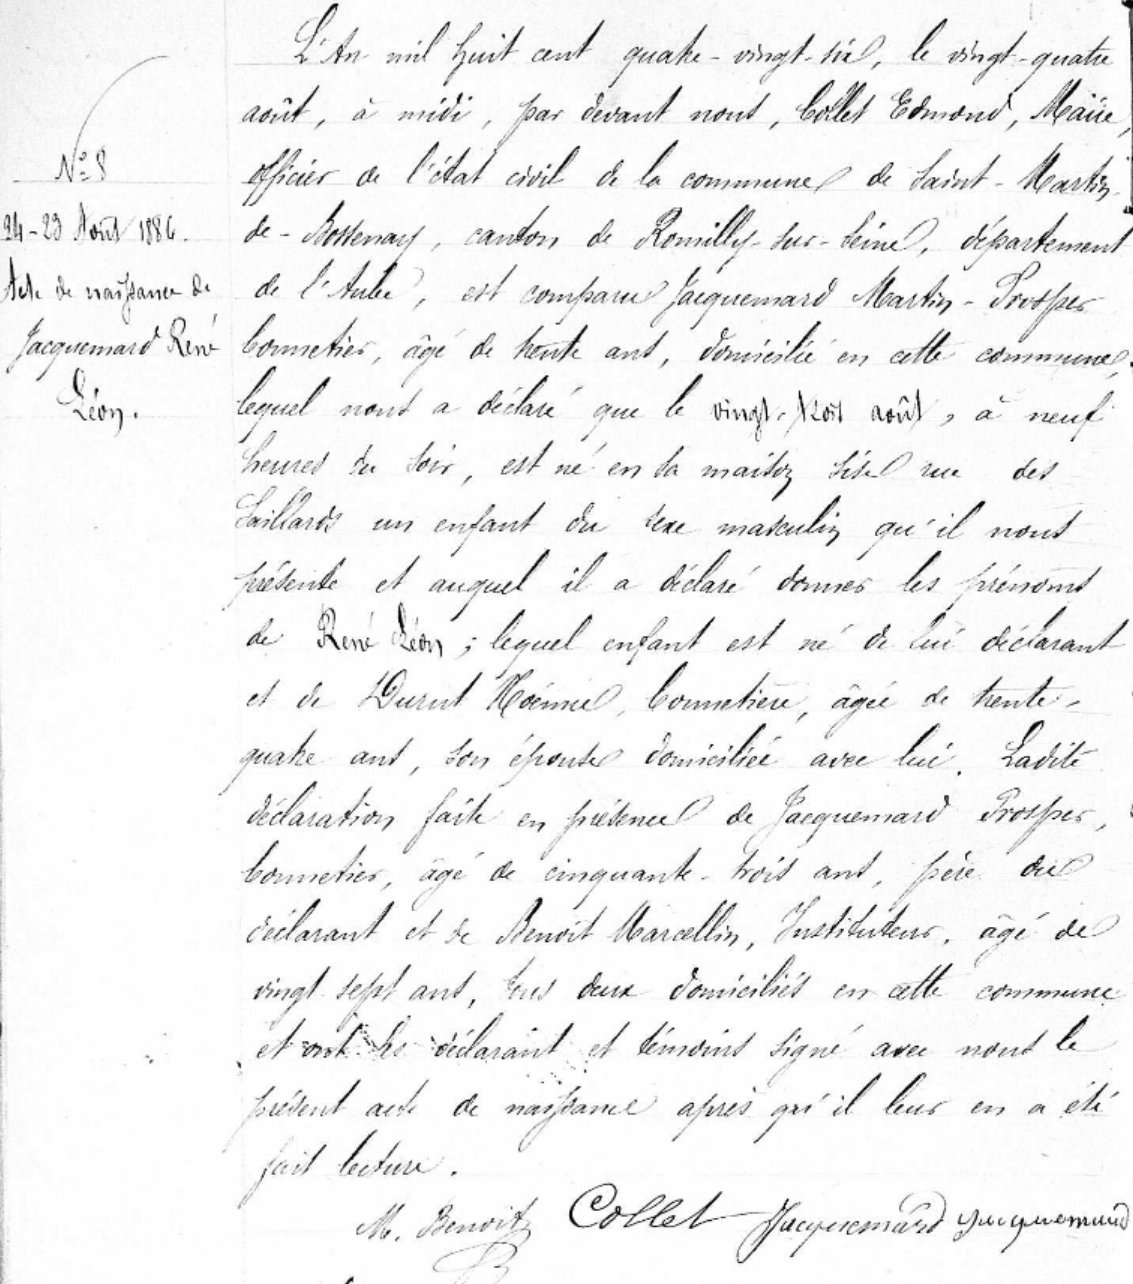 N° 8
24-23 Août 1886.
Acte de naissance de
Jacquemard René
Léon.
L'An mil huit cent quatre-vingt-six, le vingt-quatre
août, à midi, par devant nous, Collet Edmond, Maire,
officier de l'état civil de la commune de Saint-Martin-
de-Bossenay, canton de Romilly-sur-Seine, département
de l'Aube, est comparu Jacquemard Martin-Prosper
bonnetier, âgé de trente ans, domicilié en cette commune,
lequel nous a déclaré que le vingt-trois août, à neuf
heures du soir, est né en sa maison sise rue des
Saillards un enfant du sexe masculin qu'il nous
présente et auquel il a déclaré donner les prénoms
de René Léon ; lequel enfant est né de lui déclarant
et de Durut Noémie, bonnetière, âgée de trente-
quatre ans, son épouse domiciliée avec lui. Ladite
déclaration faite en présence de Jacquemard Prosper,
bonnetier, âgé de cinquante-trois ans, père du
déclarant et de Benoit Marcellin, Instituteur, âgé de
vingt sept ans, tous deux domiciliés en cette commune
et ont les déclarant et témoins signé avec nous le
présent acte de naissance après qu'il leur en a été
fait lecture.
M. Benoit Collet Jacquemard Jacquemard